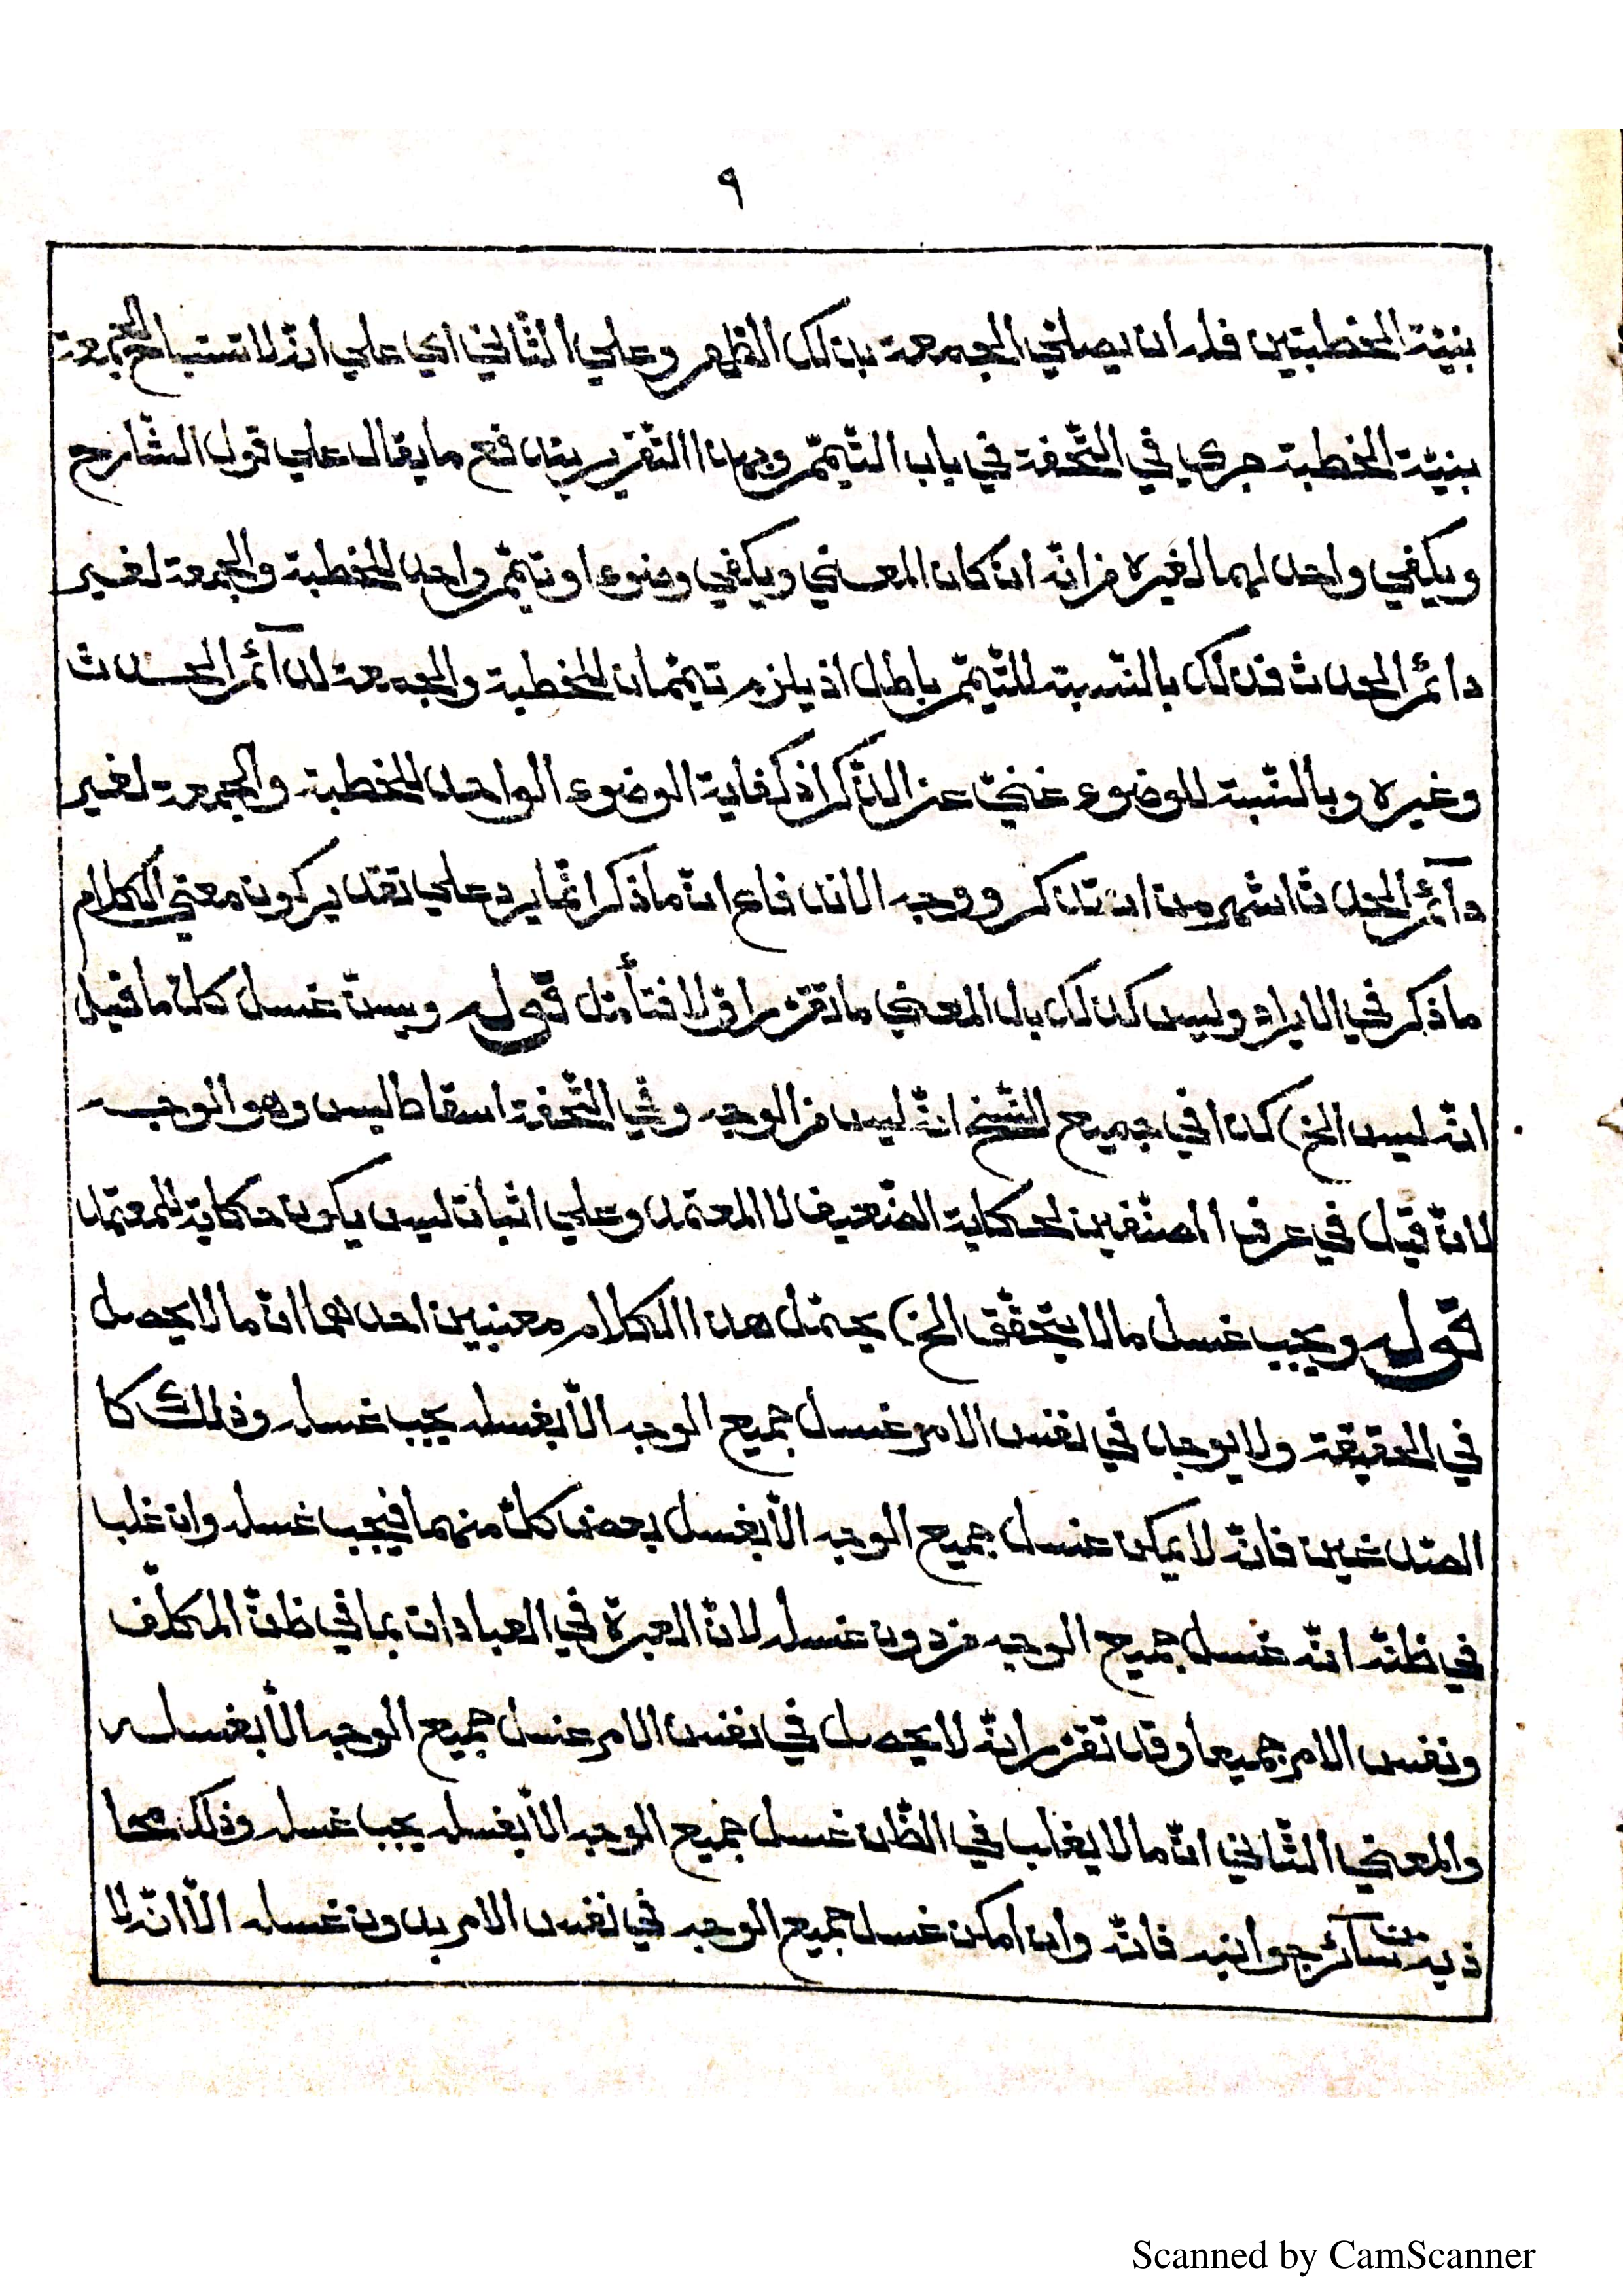 ٩
بنيّة الخطبتين فله ان يصلّي الجمعة بذلك الظهر وعلي الثّاني اي علي انّه لا تستباح الجمعة
بنيّة الخطبة جري في التّحفة في باب التّيمّم وبهذا التّقرير يندفع ما يقال علي قول الشّارح
ويكفي واحد لهما لغيره من انّه ان كان المعني ويكفي وضوء او تيمّم واحد للخطبة والجمعة لغير
دائم الحدث فذلك بالنّسبة للتّيمّم باطل اذ يلزم تيمّمان للخطبة والجمعة لدآئم الحدث
وغيره وبالنّسبة للوضوء غنيّ عن الذّكر اذ كفاية الوضوء الواحد للخطبة والجمعة لغير
دآئم الحدث اشهر من ان تذكر ووجه الاندفاع انّ ما ذكر انّما يرد علي تقدير كون معني الكلام
ما ذكر في الايراد وليس كذلك بل المعني ما تقرّر اوّلا فتأمّل قوله ويسنّ غسل كلّ ما قيل
انّه ليس الخ) كذا في جميع النّسخ انّه ليس من الوجه وفي التّحفة اسقاط ليس وهو الوجه
لانّ قيل في عرف المصنّفين لحكاية الضّعيف لا المعتمد وعلي اثبات ليس يكون حكاية للمعتمد
قوله ويجب غسل ما لا يتحقّق الخ) يحتمل هذا الكلام معنيين احدهما انّ ما لا يحصل
في الحقيقة ولا يوجد في نفس الامر غسل جميع الوجه الّا بغسله يجب غسله وذلك كا
الصّدغين فانّه لا يمكن غسل جميع الوجه الّا بغسل بعض كلّ منهما فيجب غسله وان غلب
في ظنّه انّه غسل جميع الوجه من دون غسله لانّ العبرة في العبادات بما في ظنّ المكلّف
ونفس الامر جميعا وقد تقرّر انّه لا يحصل في نفس الامر غسل جميع الوجه الّا بغسله
والمعني الثّاني انّ ما لا يغلب في الظّن غسل جميع الوجه الّا بغسله يجب غسله وذلك
سآئر جوانبه فانّه وان امكن غسل جميع الوجه في نفس الامر بدون غسله الّا انّه لا
Scanned by CamScanner